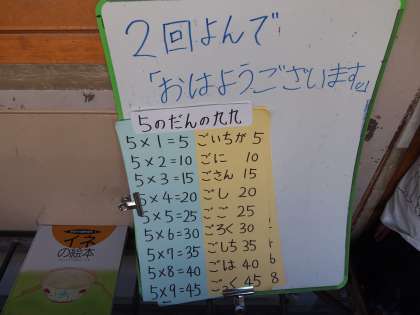 2回よんで
「おはようございます」
5のだんの九九
5×1=5 ごいちが 5
5×2=10 ごに 10
5×3=15 ごさん 15
5×4=20 ごし 20
5×5=25 ごご 25
5×6=30 ごろく 30
5×7=35 ごしち 35
5×8=40 ごは 40
5×9=45 ごっく 45
8
イネ
の絵本